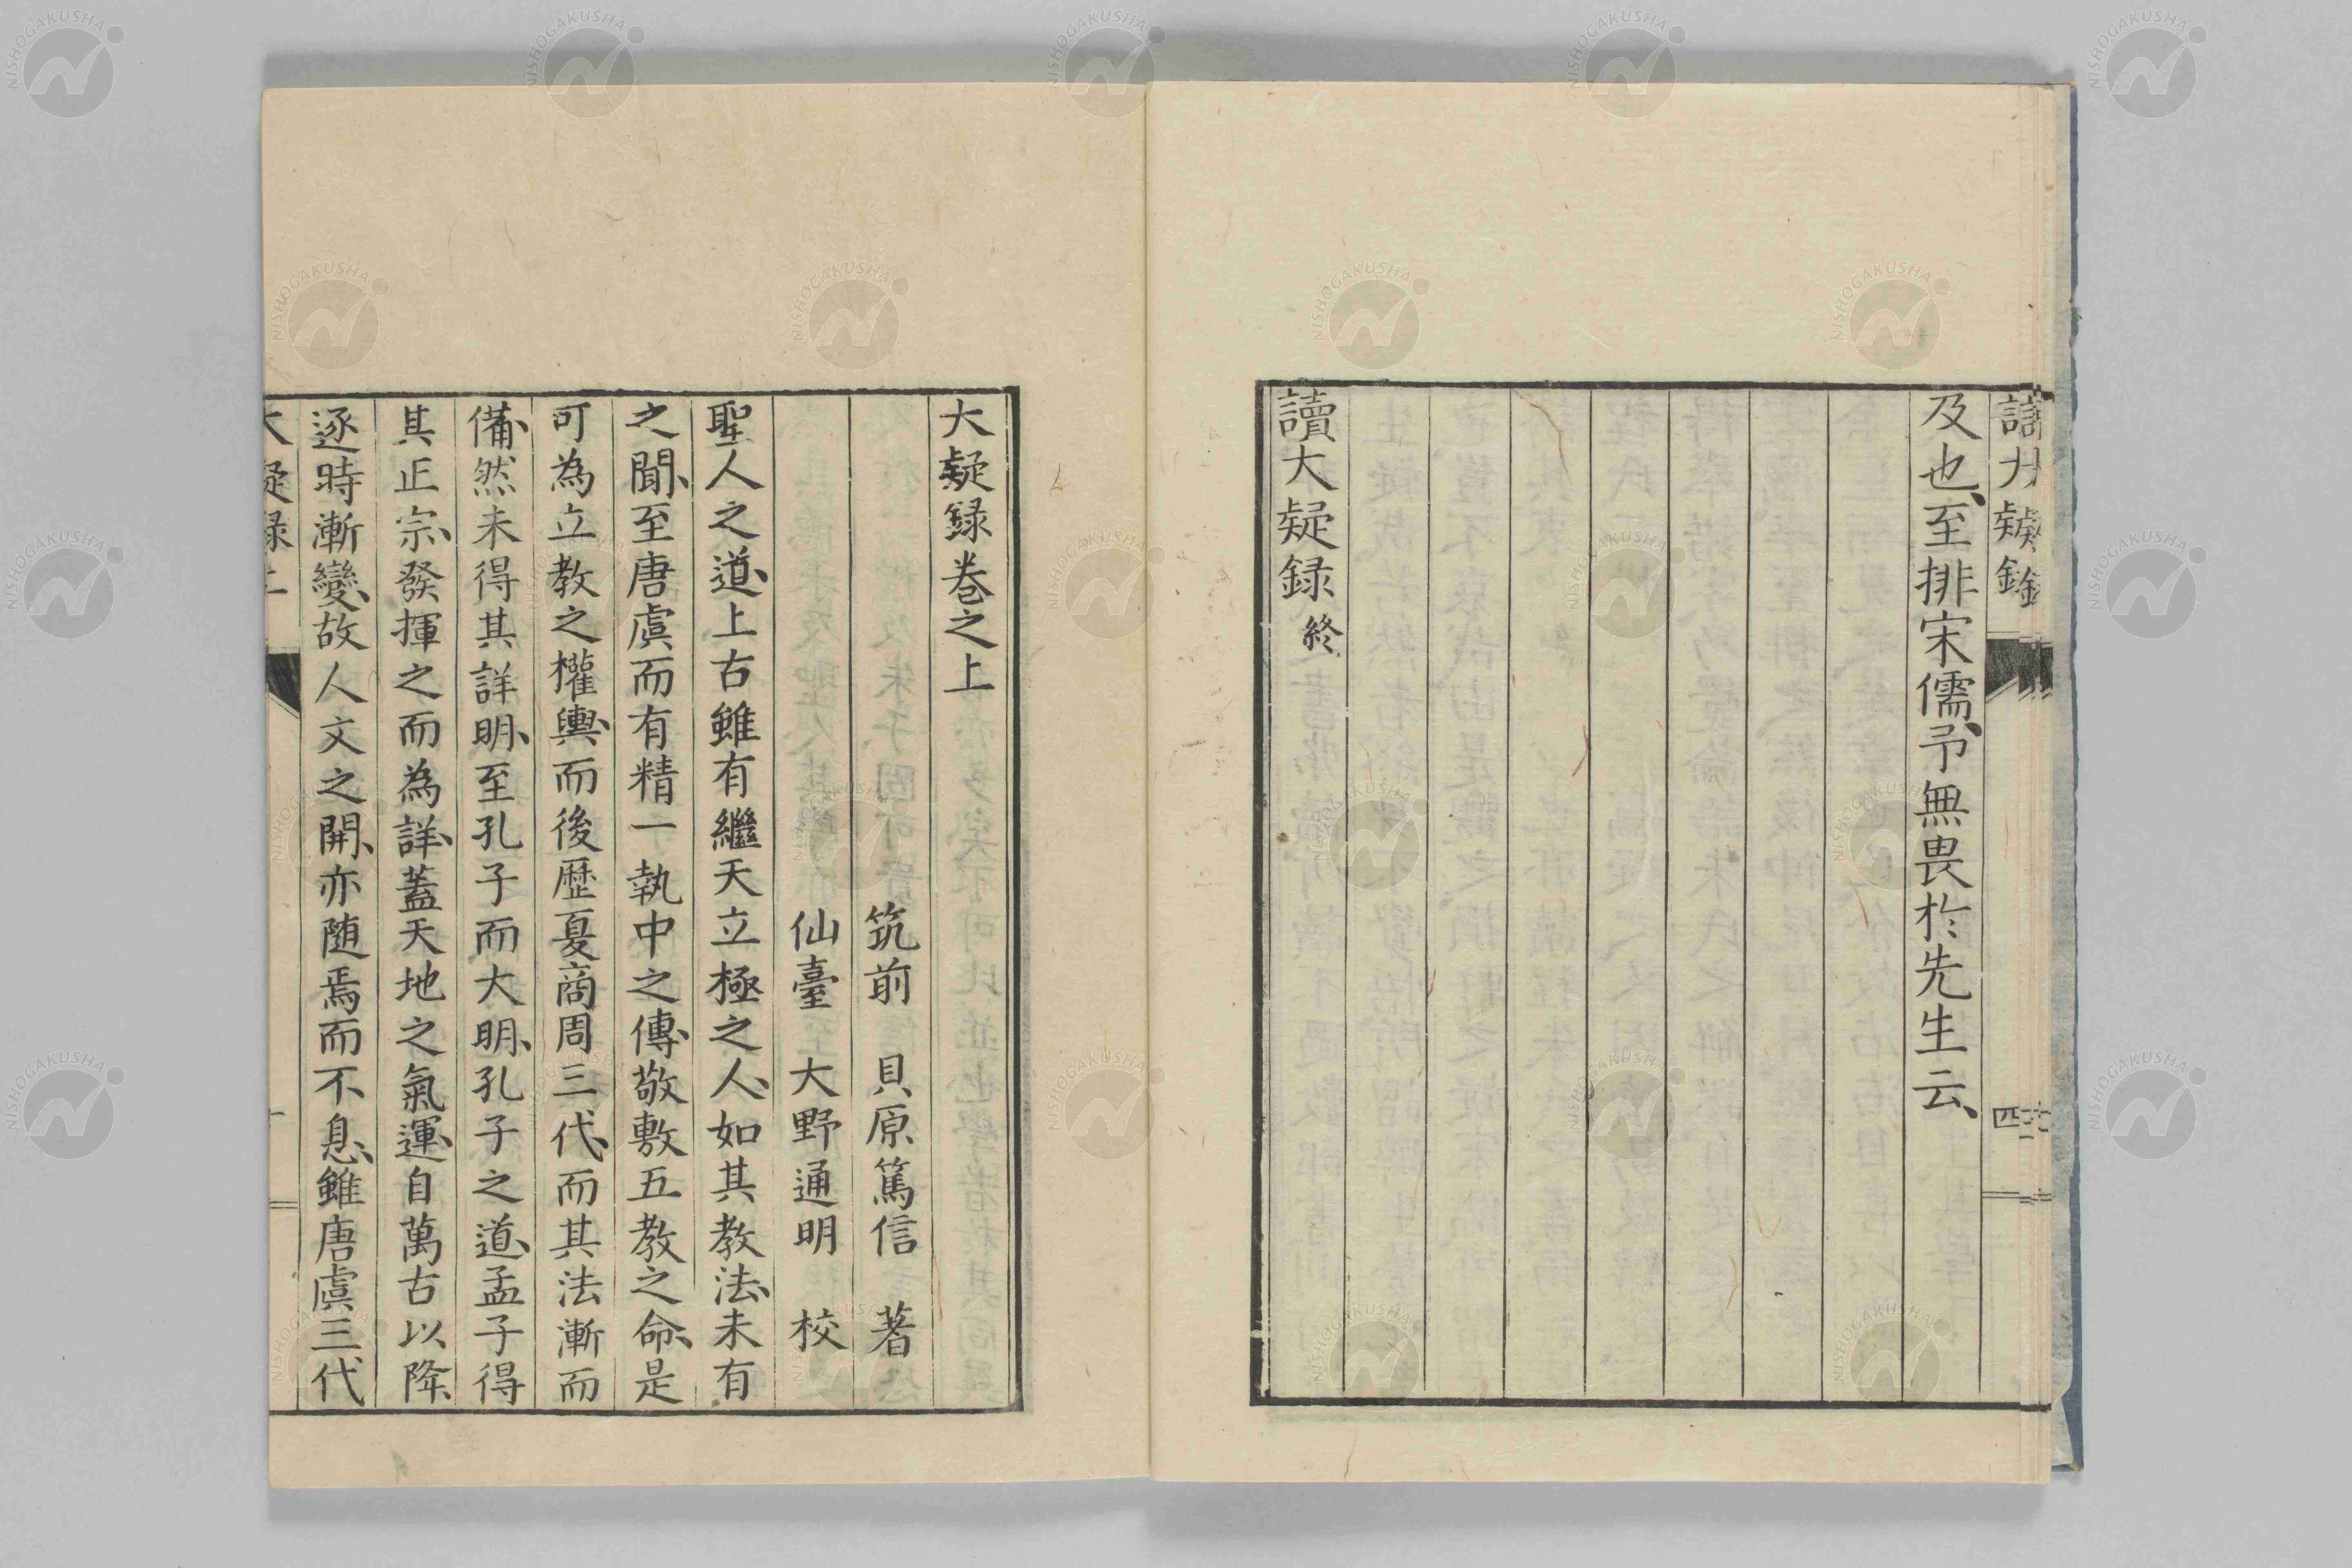 讀大疑錄
四
及也、至排宋儒、予無畏於先生云、
讀大疑錄終
大疑錄巻之上
筑前 貝原篤信 著
仙臺 大野通明 校
聖人之道、上古雖有繼天立極之人、如其教法、未有
之聞、至唐虞而有精一執中之傳、敬敷五教之命、是
可為立教之權輿、而後歷夏商周三代、而其法漸而
備、然未得其詳明、至孔子而大明、孔子之道、孟子得
其正宗、發揮之而為詳、蓋天地之氣運、自萬古以降、
逐時漸變、故人文之開、亦随焉而不息、雖唐虞三代
大疑錄上
NISHOGAKUSHA